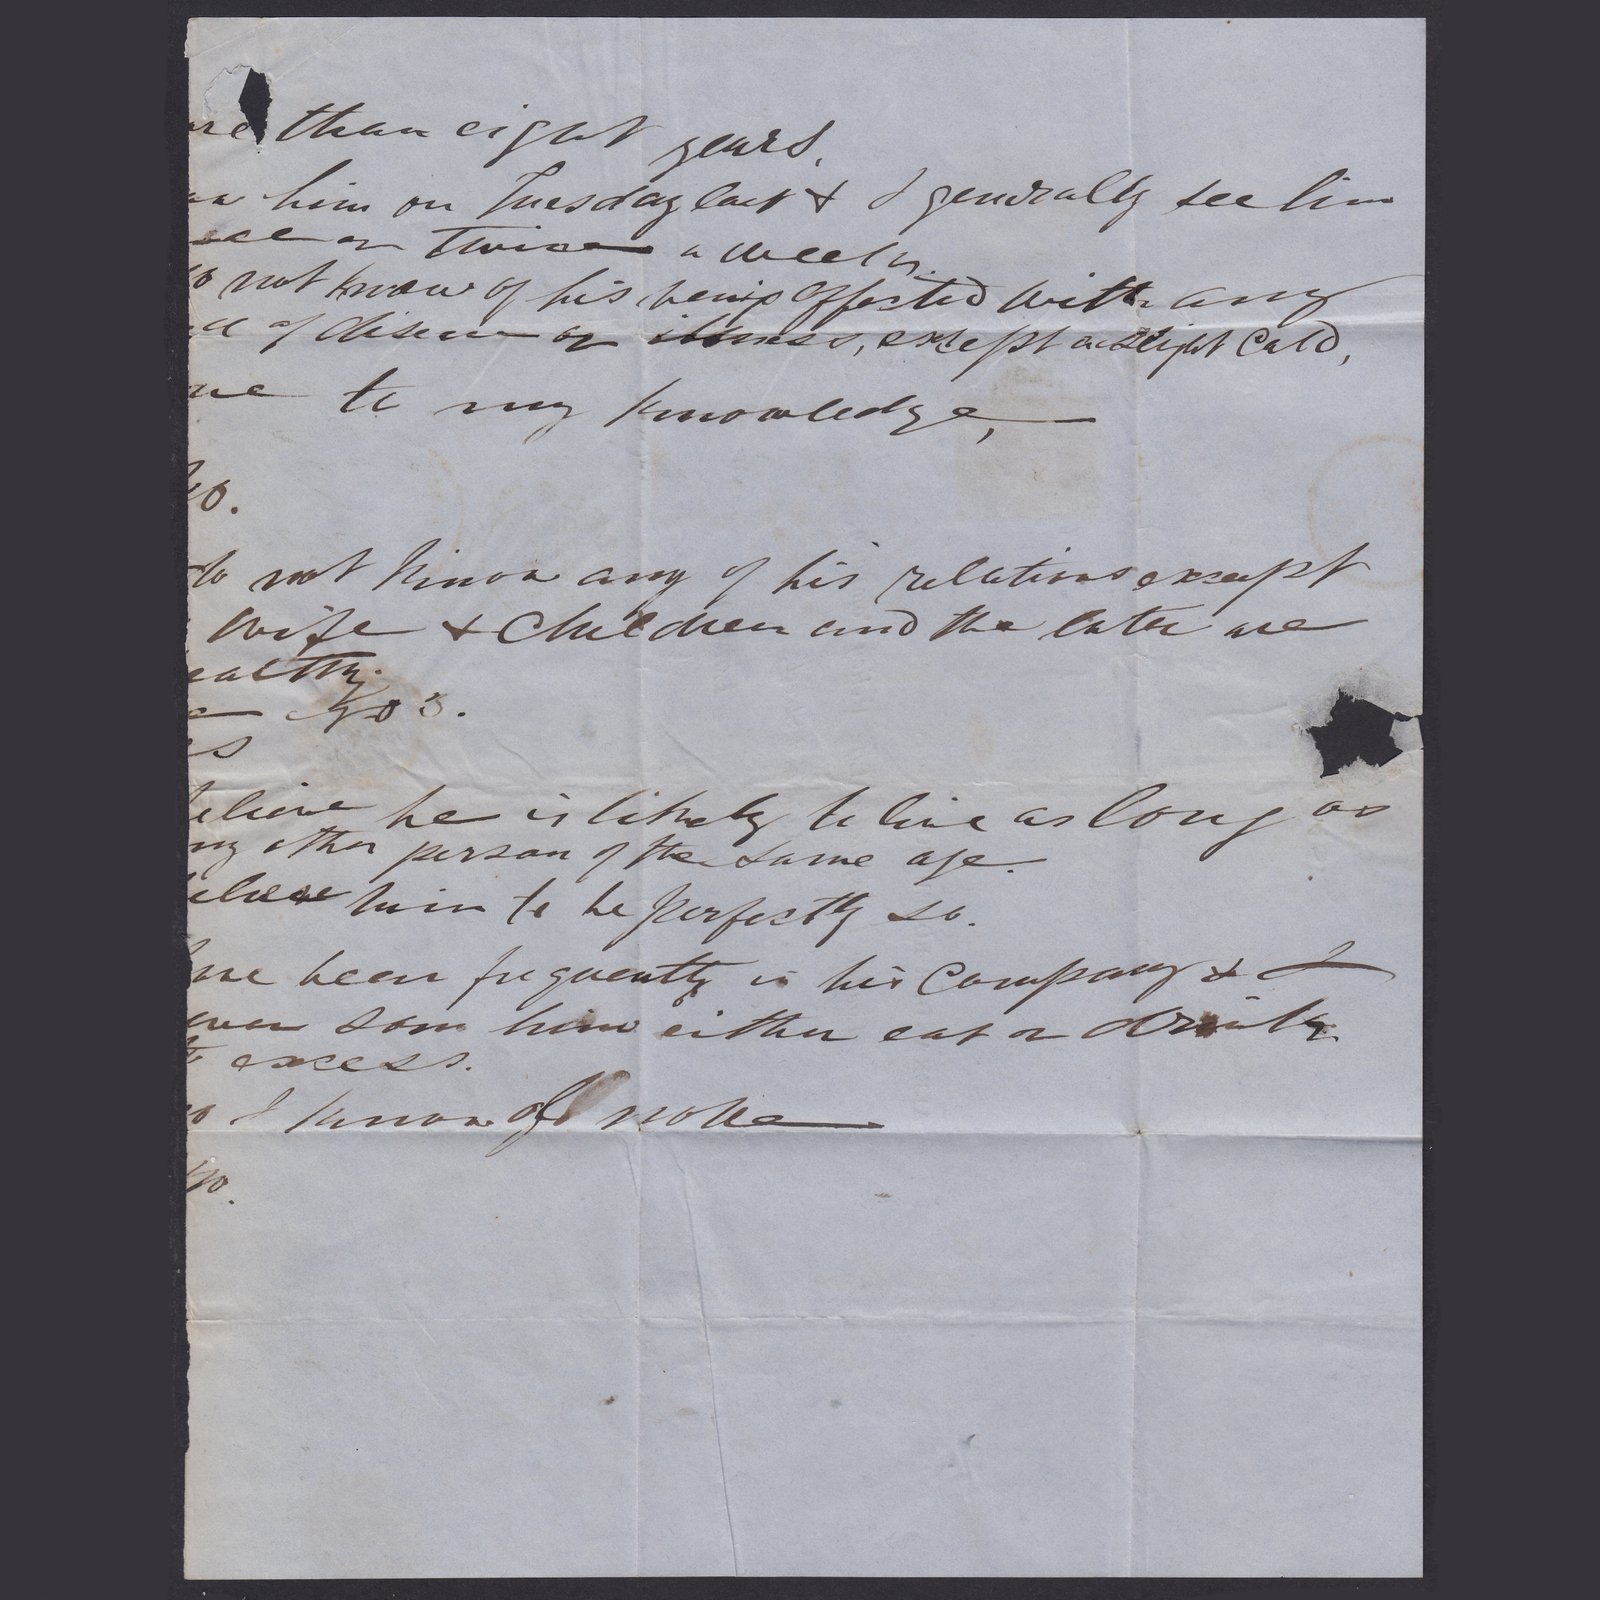 re than eight years.
aw him on Tuesday last & I generally see him
nce or twice a week.
o not know of his being affected with any
nd of disease or illness, except a slight cold,
one to my knowledge,
No.
do not know any of his relations except
wife & children and the later are
ealthy.
es
believe he is likely to live as long as
ny other person of the same age.
believe him to be perfectly so.
have been frequently in his company & I
ever saw him either eat or drink
to excess.
no I know of none
No.